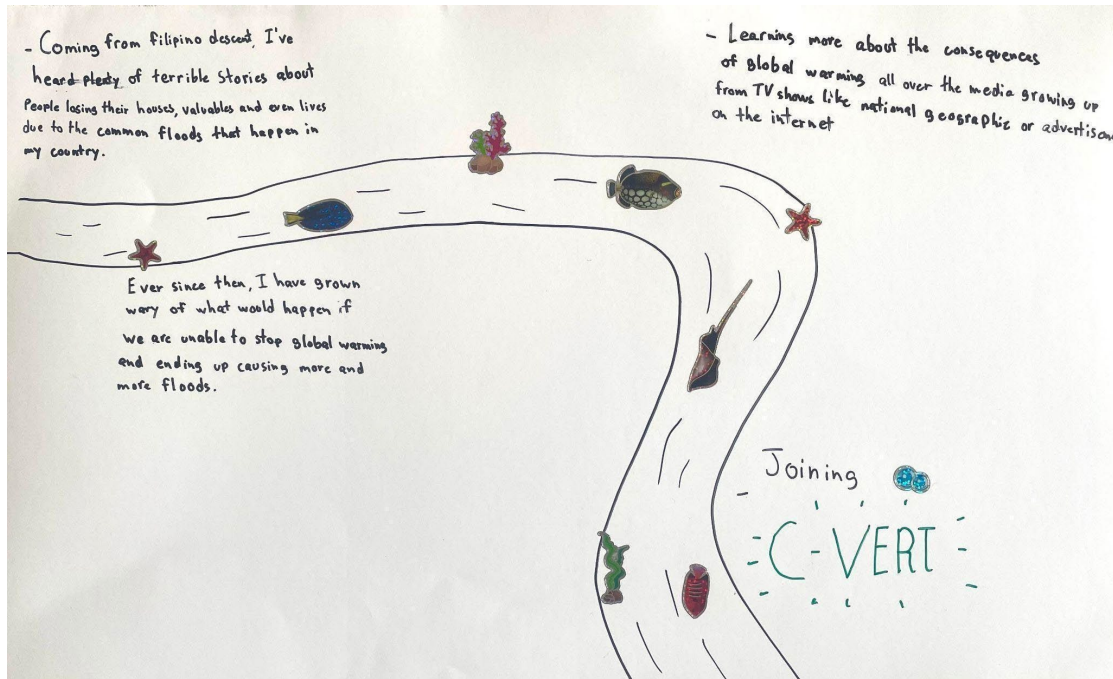 - Coming from filipino descent, I've
heard plenty of terrible stories about
People losing their houses, valuables and even lives
due to the common floods that happen in
my country.
- Learning more about the consequences
of global warming all over the media growing up
from TV shows like national geographic or
on the internet
Ever since then, I have grown
wary of what would happen if
we are unable to stop global warming
and ending up causing more and
more floods.
- Joining
C-VERT